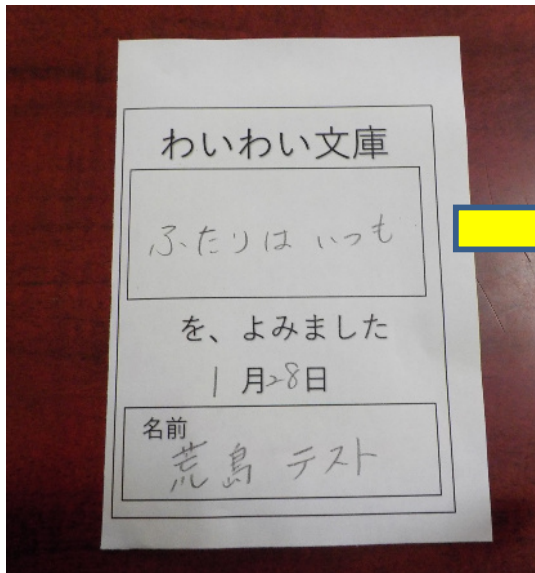 わいわい文庫
ふたりは いつも
を、よみました
1月28日
名前
荒島 テスト